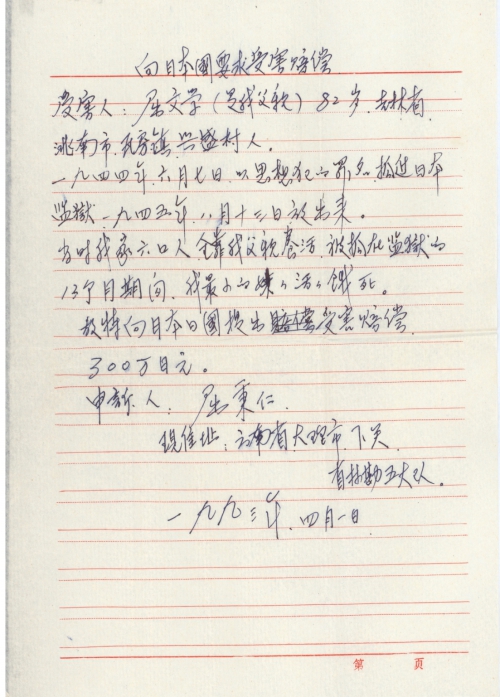 向日本國要求受害赔偿
受害人：屈文学（是我父親）82岁，吉林省
洮南市，瓦房镇，兴盛村人。
一九四四年，六月七日，以思想犯的罪名，抓进日本
监獄，一九四五年，八月十三日放出来。
当时我家六口人，全靠我父親养活，被抓在监獄的
13个月期间，我最小的妹妹活活饿死。
故特向日本国提出受害赔偿
300万日元。
申訴人：屈秉仁
现住址：云南省大理市，下关
省林勘五大队。
一九九三年，四月一日
第 页